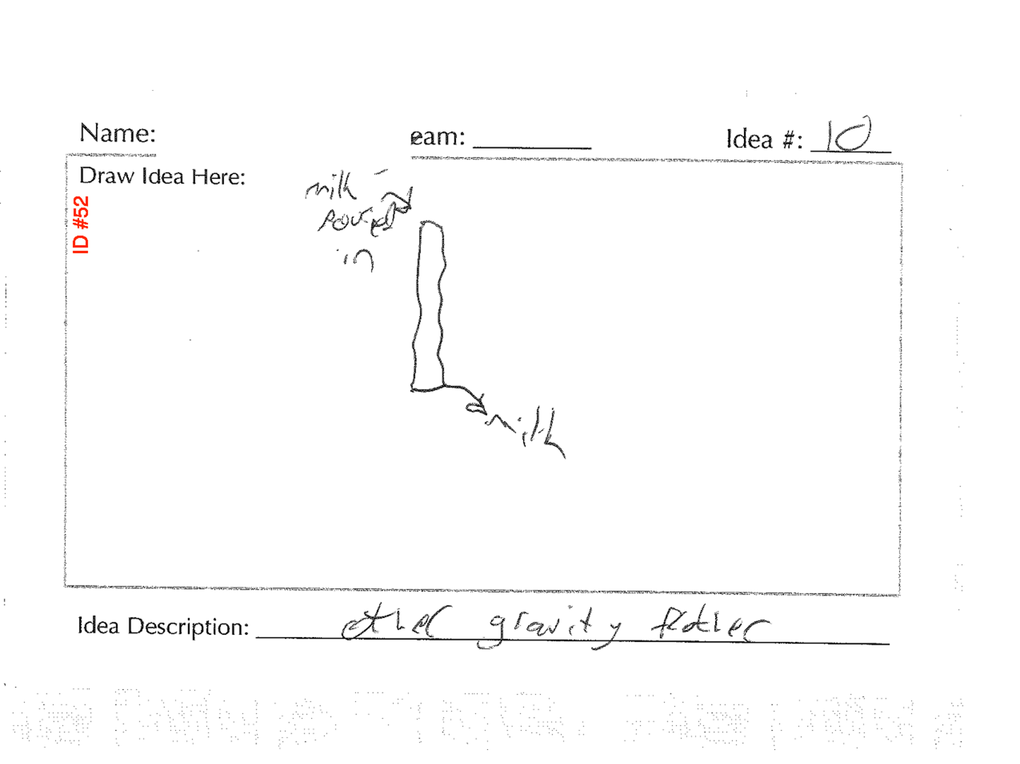 Name:
eam:
Idea #: 10
Draw Idea Here:
ID #52
milk
poured
in
milk
Idea Description: other gravity frother